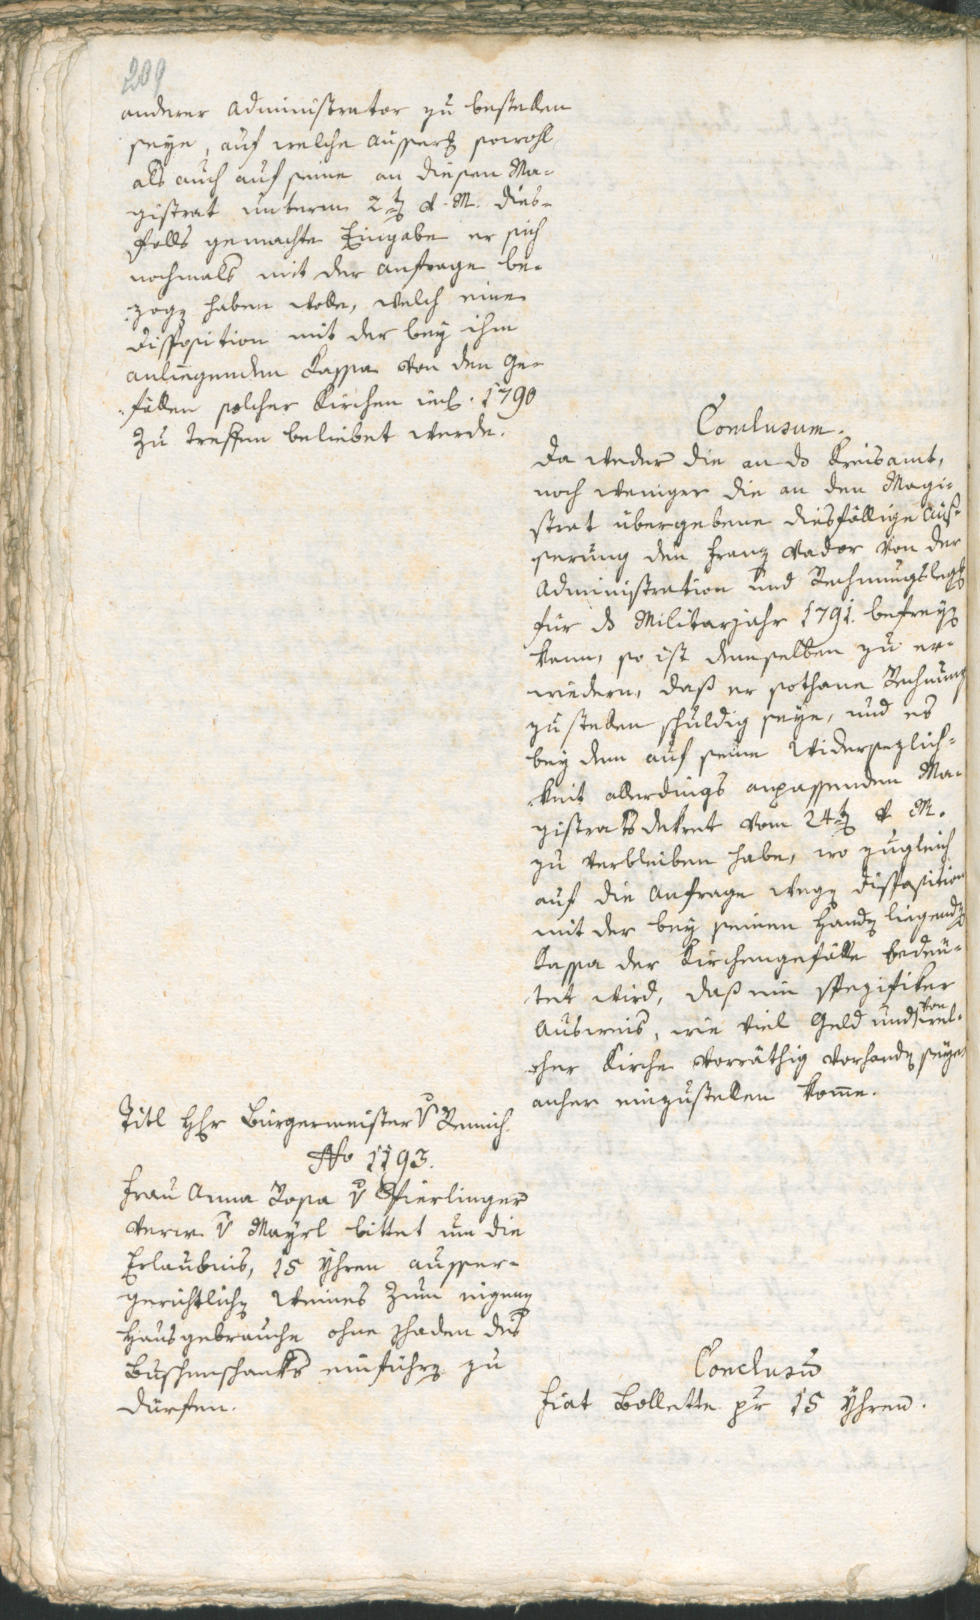 209
anderer Administrator zu bestellen
seye, auf welche äusserg sowohl
als auch auf seine an diesen Ma-
gistrat unterm 2ten d. M. dies-
falls gemachte Eingabe er sich
nochmals mit der Anfrage be-
zogen haben wolle, welch eine
Disposition mit der bey ihm
anliegenden Kassa von den Ge-
fällen solcher Kirchen incl. 1790
zu treffen beliebet werde.
Conclusum.
Da weder die an ds Kreisamt,
noch weniger die an den Magi-
strat übergebene diesfällige Äus-
serung den Franz Vador von der
Administration und Rechnungslegg
für ds Militarjahr 1791. befreyen
kann, so ist demselben zu er-
wiedern, daß er sothane Rechnung
zu stellen schuldig seye, und es
bey dem auf seine Widersezlich-
keit allerdings anpassenden Ma-
gistratsdekret vom 24ten d. M.
zu verbleiben habe, wo zugleich
auf die Anfrage wegen Disposition
mit der bey seinen Handen liegenden
Kassa der Kirchengefälle bedeu-
tet wird, daß ein spezifiker
Ausweis, wie viel Geld und von wel-
cher Kirche vorräthig vorhanden seye,
anher einzustellen komme.
Titl HHr Bürgermeister v Remich.
No 1193.
Frau Anna Rosa v Pfierlinger
verw. v Mayrl bittet um die
Erlaubnis, 15 Yhren ausser-
gerichtlichen Weines zum eigenen
Hausgebrauche ohne Schaden des
Buschenschanks einführen zu
dürfen.
Conclusum
Fiat Bollette pr 15 Yhren.